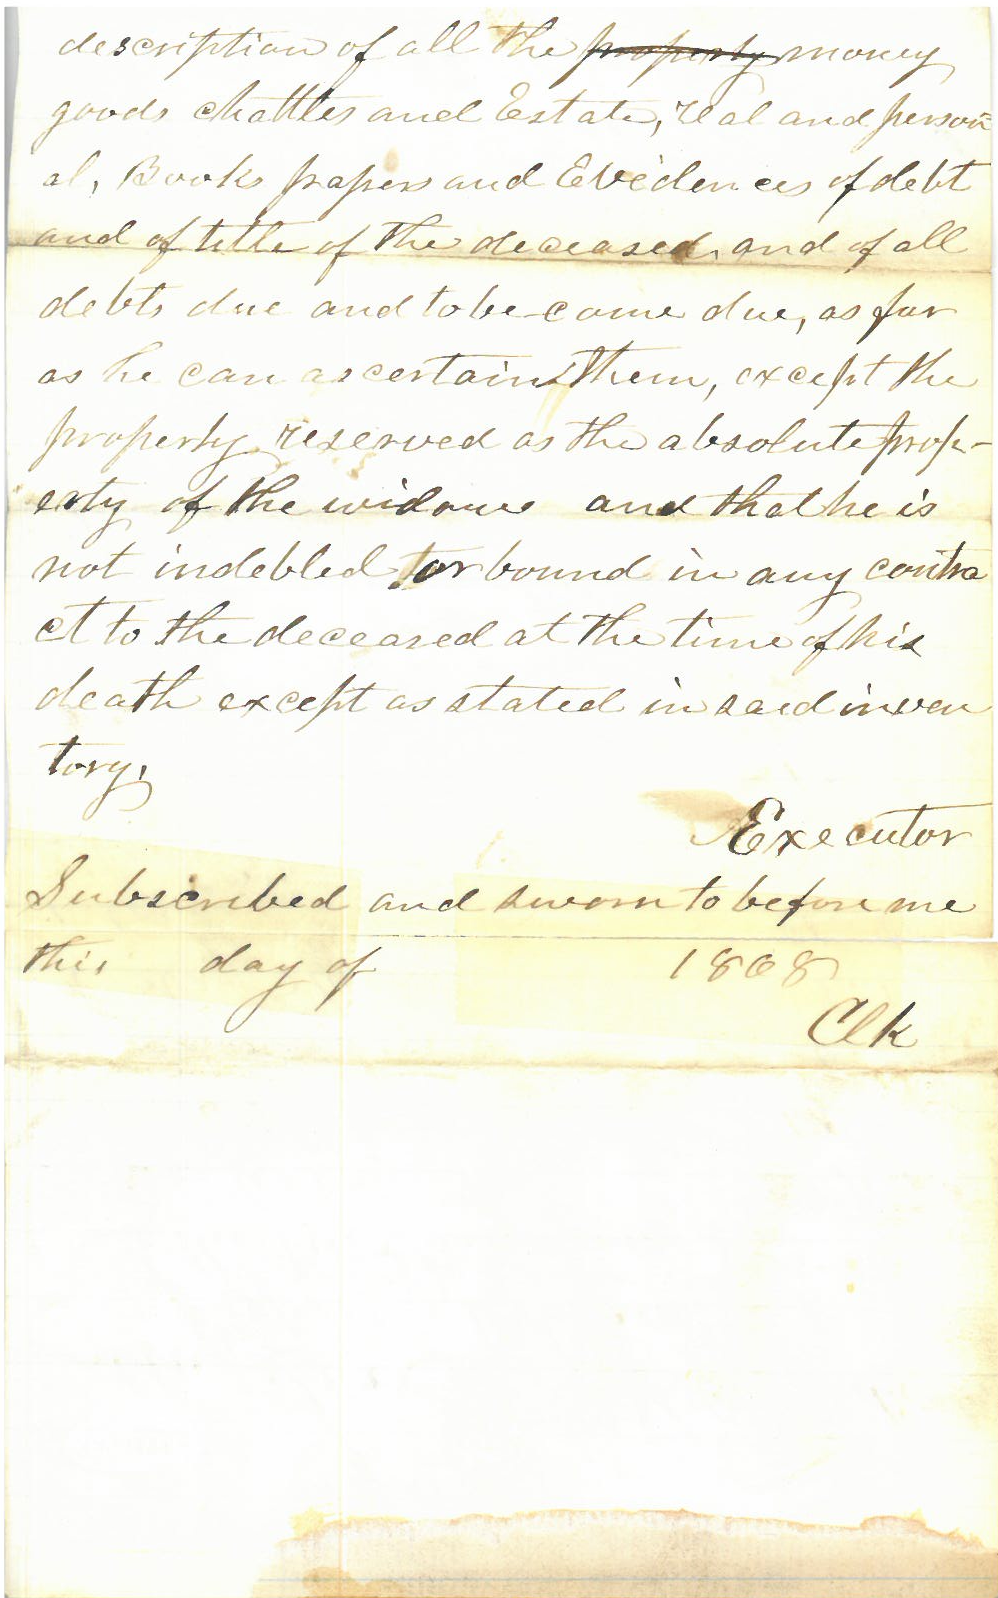 description of all the property money
goods chattles and Estate, real and person
al, Books papers and Evidences of debt
and of title of the deceased, and of all
debts due and to be-come due, as far
as he can ascertain them, except the
property reserved as the absolute prop-
erty of the widow and that he is
not indebted or bound in any contra
ct to the deceased at the time of his
death except as stated in said inven
tory,
Executor
Subscribed and sworn to before me
this day of 1868
Clk